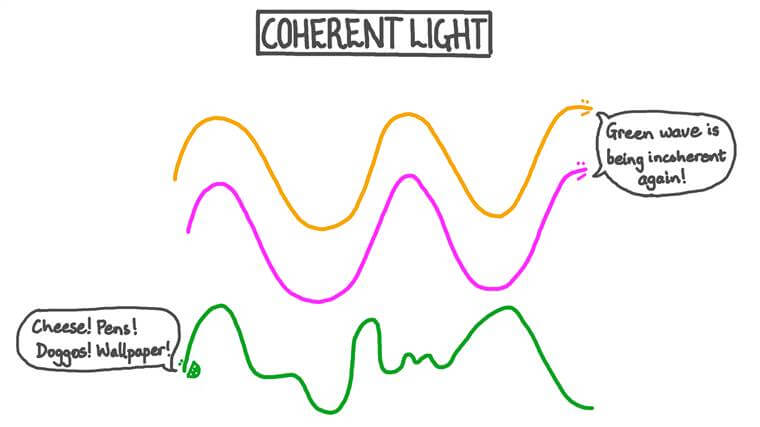 COHERENT LIGHT
Green wave is
being incoherent
again!
Cheese! Pens!
Doggos! Wallpaper!